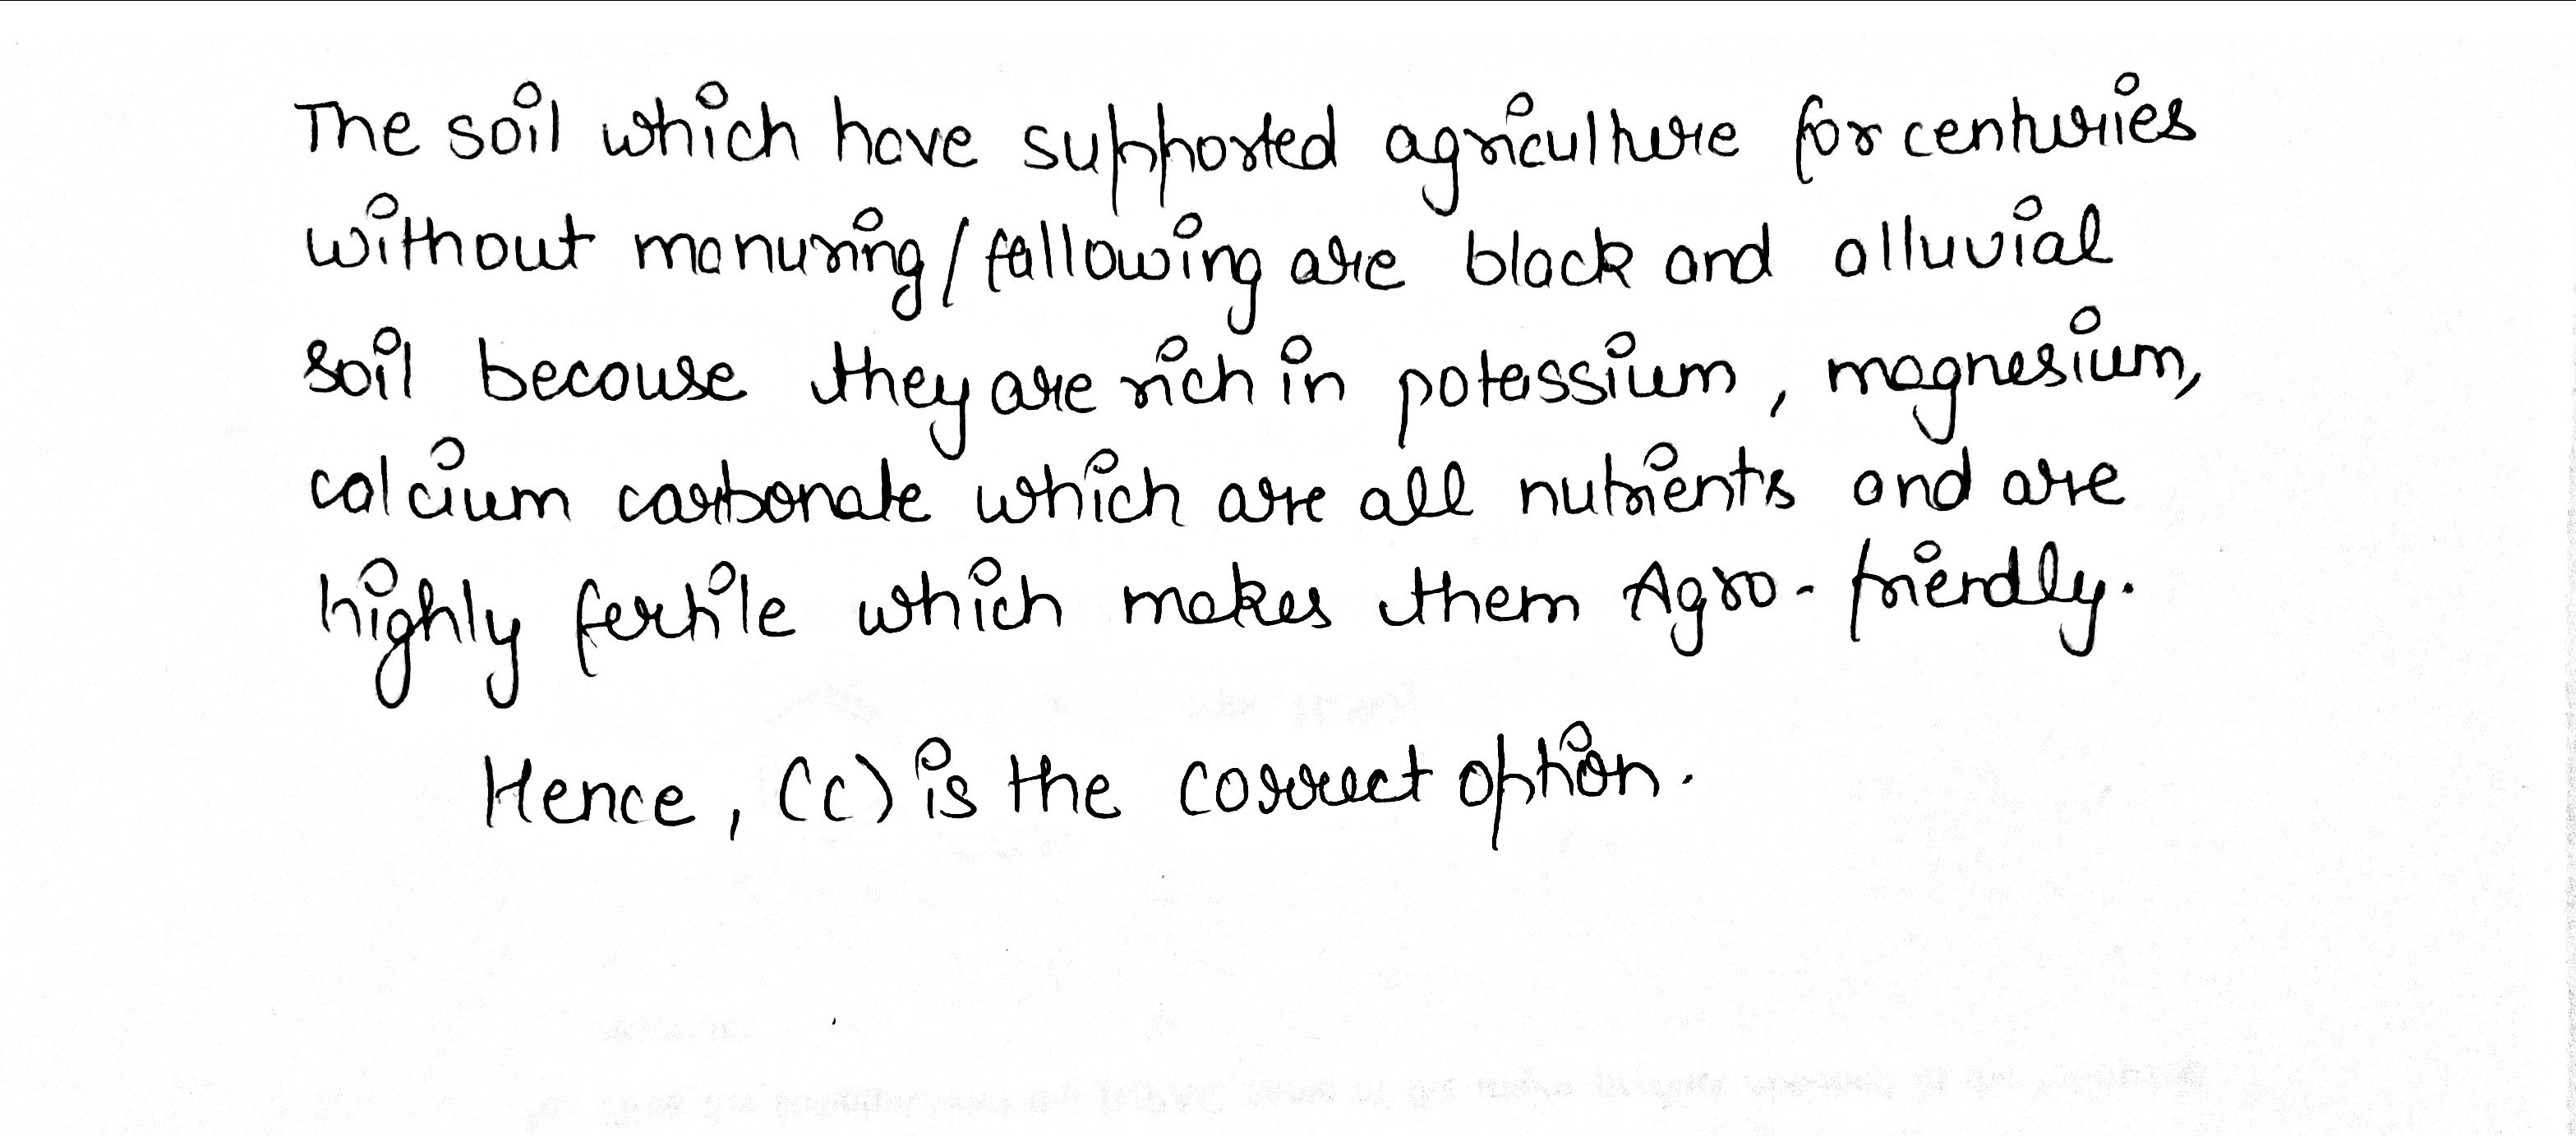 The soil which have supported agriculture for centuries
without manuring/fallowing are black and alluvial
soil because they are rich in potassium, magnesium,
calcium carbonate which are all nutrients and are
highly fertile which makes them Agro-friendly.
Hence, (c) is the correct option.